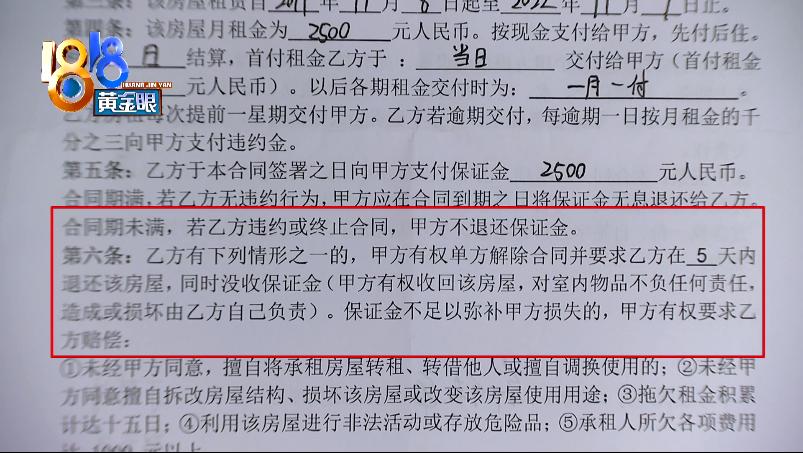 第三条：该房屋租赁自2021年11月8日起至2022年11月7日止。
第四条：该房屋月租金为 2500 元人民币。按现金支付给甲方，先付后住。
1818
HUANG JIN YAN
黄金眼
月 结算，首付租金乙方于： 当日 交付给甲方（首付租金
元人民币）。以后各期租金交付时为： 一月一付 。
每次提前一星期交付甲方。乙方若逾期交付，每逾期一日按月租金的千
分之三向甲方支付违约金。
第五条：乙方于本合同签署之日向甲方支付保证金 2500 元人民币。
合同期满，若乙方无违约行为，甲方应在合同到期之日将保证金无息退还给乙方。
合同期未满，若乙方违约或终止合同，甲方不退还保证金。
第六条：乙方有下列情形之一的，甲方有权单方解除合同并要求乙方在 5 天内
退还该房屋，同时没收保证金（甲方有权收回该房屋，对室内物品不负任何责任，
造成或损坏由乙方自己负责）。保证金不足以弥补甲方损失的，甲方有权要求乙
方赔偿：
①未经甲方同意，擅自将承租房屋转租、转借他人或擅自调换使用的；②未经甲
方同意擅自拆改房屋结构、损坏该房屋或改变该房屋使用用途；③拖欠租金积累
计达十五日；④利用该房屋进行非法活动或存放危险品；⑤承租人所欠各项费用
达 1000 元以上